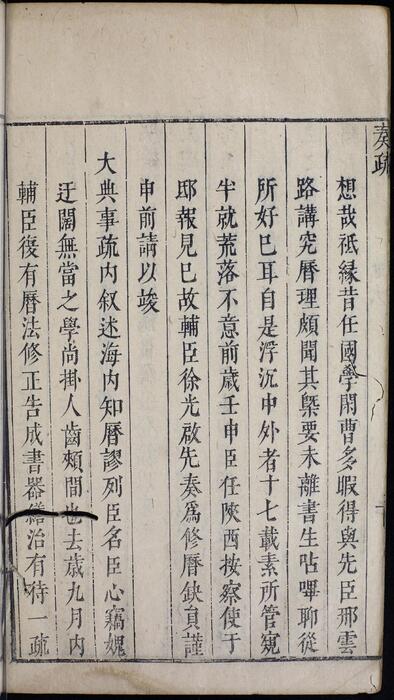 奏疏
想哉祇緣昔任國學閑曹多暇得與先臣邢雲
路講究曆理頗聞其槩要未離書生呫嗶聊從
所好已耳自是浮沉中外者十七載素所管窺
半就荒落不意前歲壬申臣任陝西按察使于
邸報見已故輔臣徐光啟先奏爲修曆缺員謹
申前請以竣
大典事疏內叙述海內知曆謬列臣名臣心竊媿
迂闊無當之學尚掛人齒頰間也去歲九月內
輔臣復有曆法修正告成書器繕治有待一疏